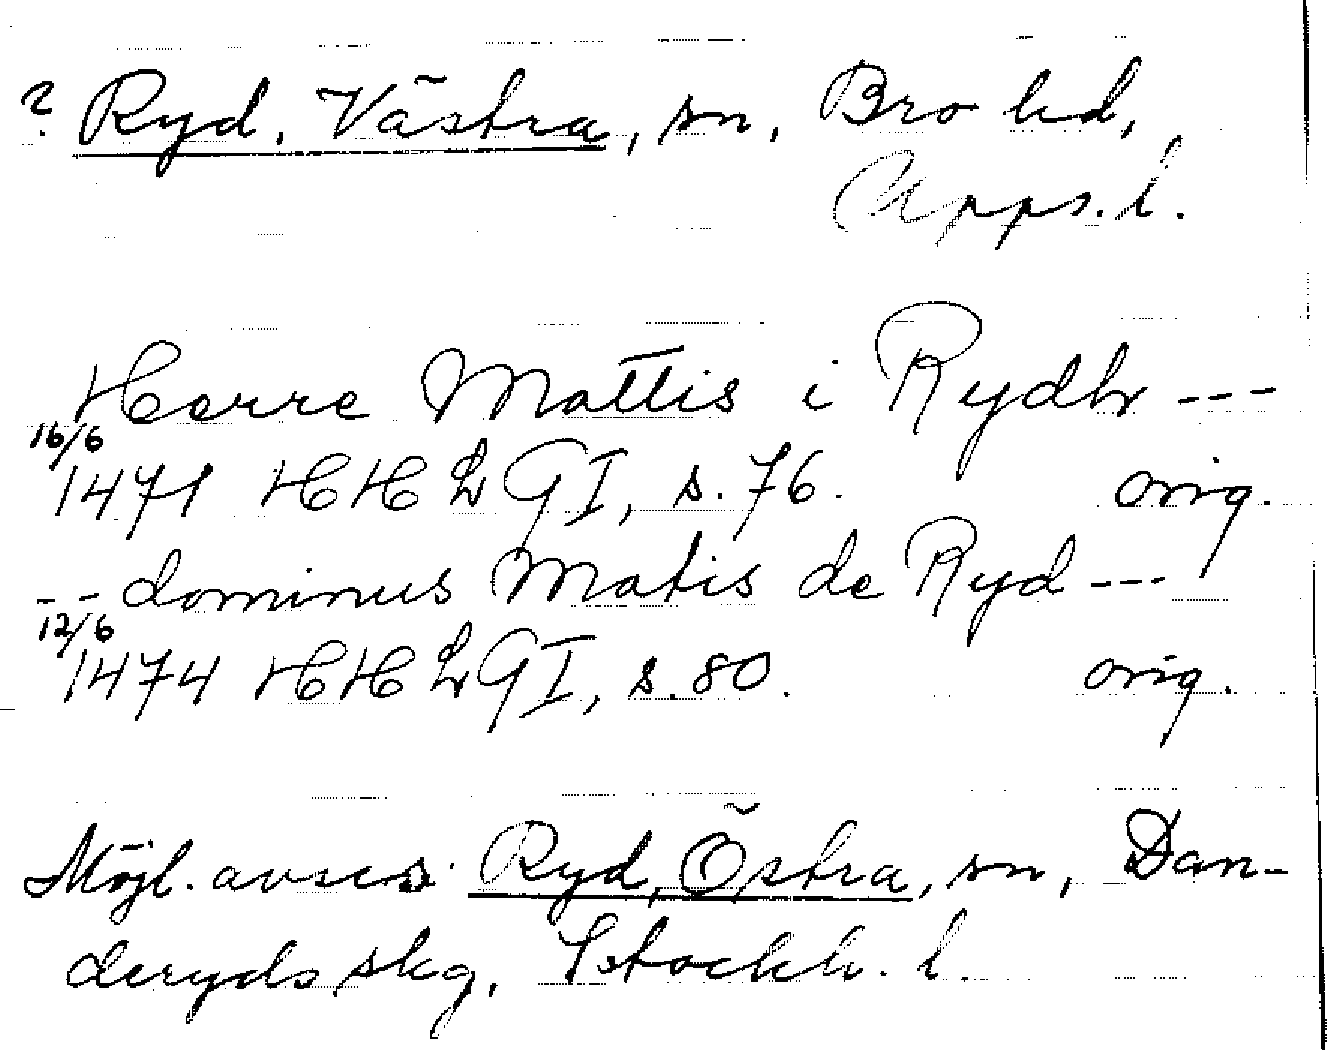 ? Ryd, Västra, sn, Bro hd,
Upps. l.
Herre Mattis i Rydh ---
16/6
1471 HHLGI, s. 76. orig.
-- dominus Matis de Ryd ---
12/6
1474 HHLGI, s. 80. orig.
Möjl. avses Ryd, Östra, sn, Dan-
deryds skg, Stockh. l.